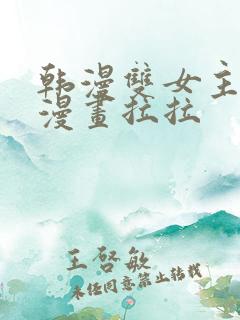 韩漫雙女主
漫畫拉拉
王啓敏
未经同意禁止转载